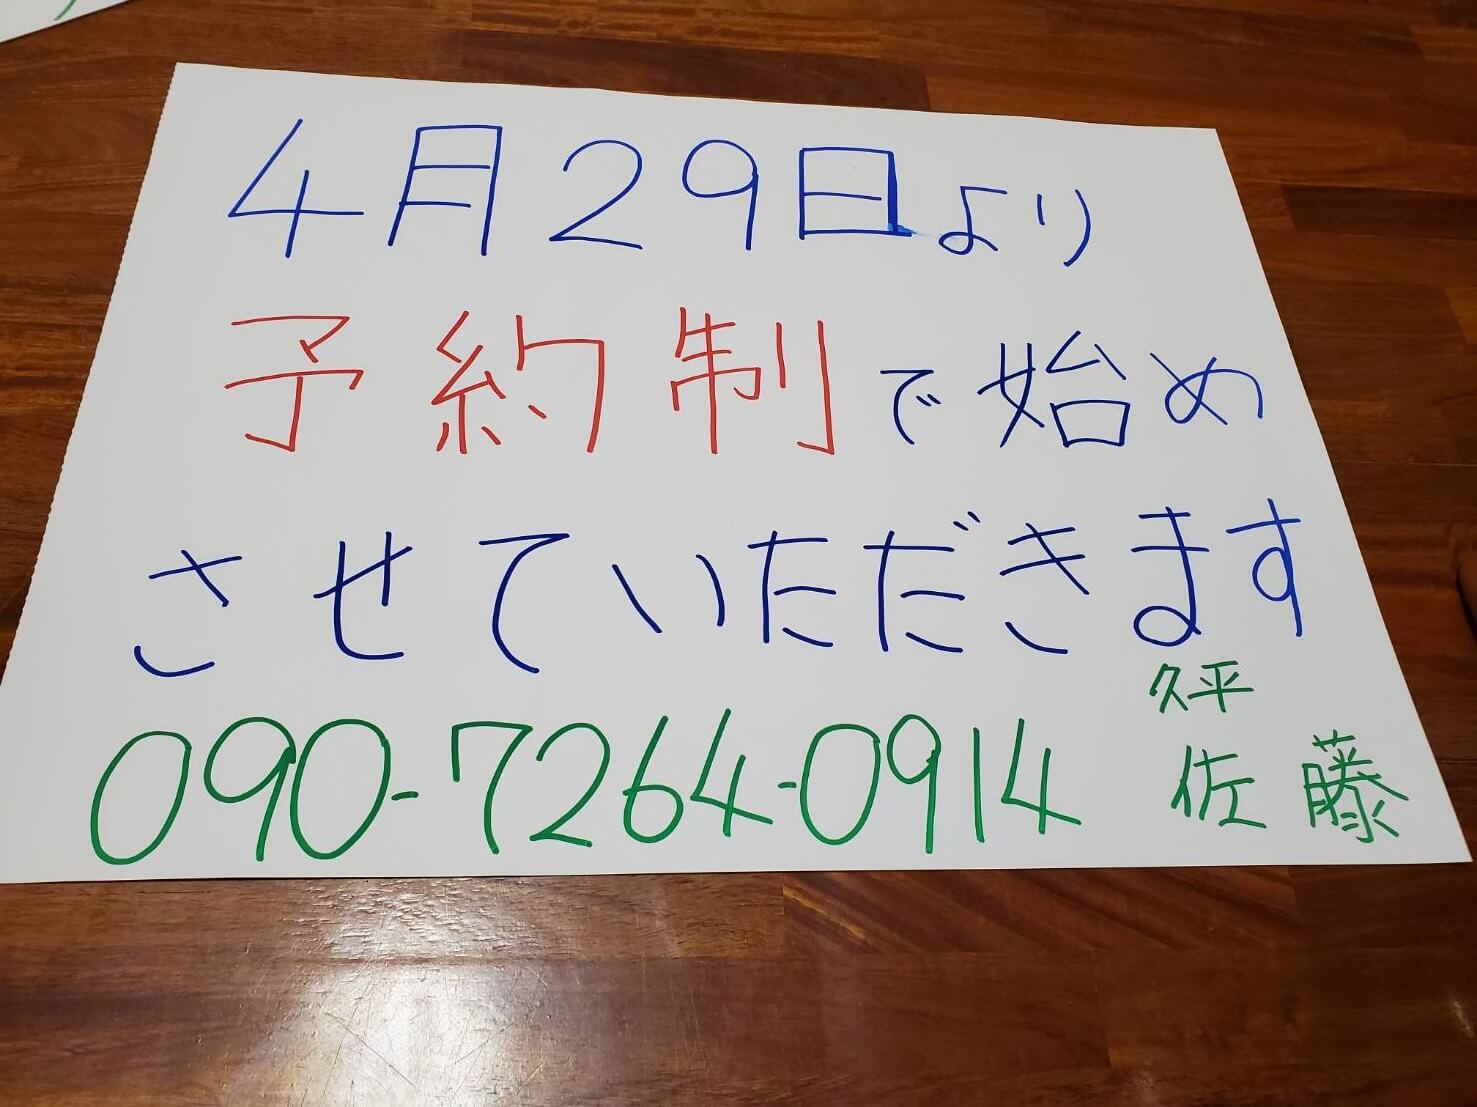 4月29日より
予約制で始め
させていただきます
久平
090-7264-0914 佐藤